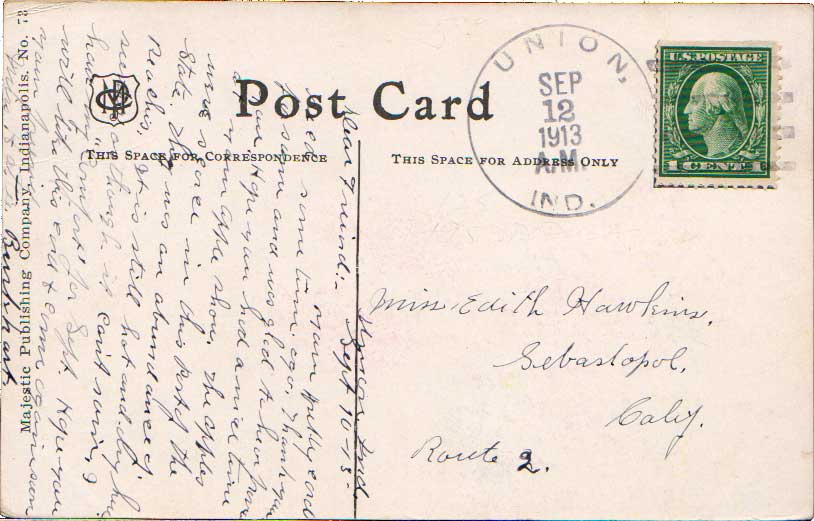 Post Card
THIS SPACE FOR CORRESPONDENCE
THIS SPACE FOR ADDRESS ONLY
UNION,
SEP
12
1913
A.M.
IND.
U.S. POSTAGE
1 CENT 1
Miss Edith Hawkins.
Sebastopol,
Calif.
Route 2.
Ind.
Sept 10-13-
Dear Friend:-
card
some time ago. Thank you
for same and was glad to hear from
you. Hope you had a nice time
at your apple show. The apples
were scarce in this part of the
State. There was an abundance of
Peaches. It is still hot and dry here
as though it can't rain,
for Sept. Hope you
will like this card & come again soon
your friend
Burkhart
Majestic Publishing Company, Indianapolis. No. 73